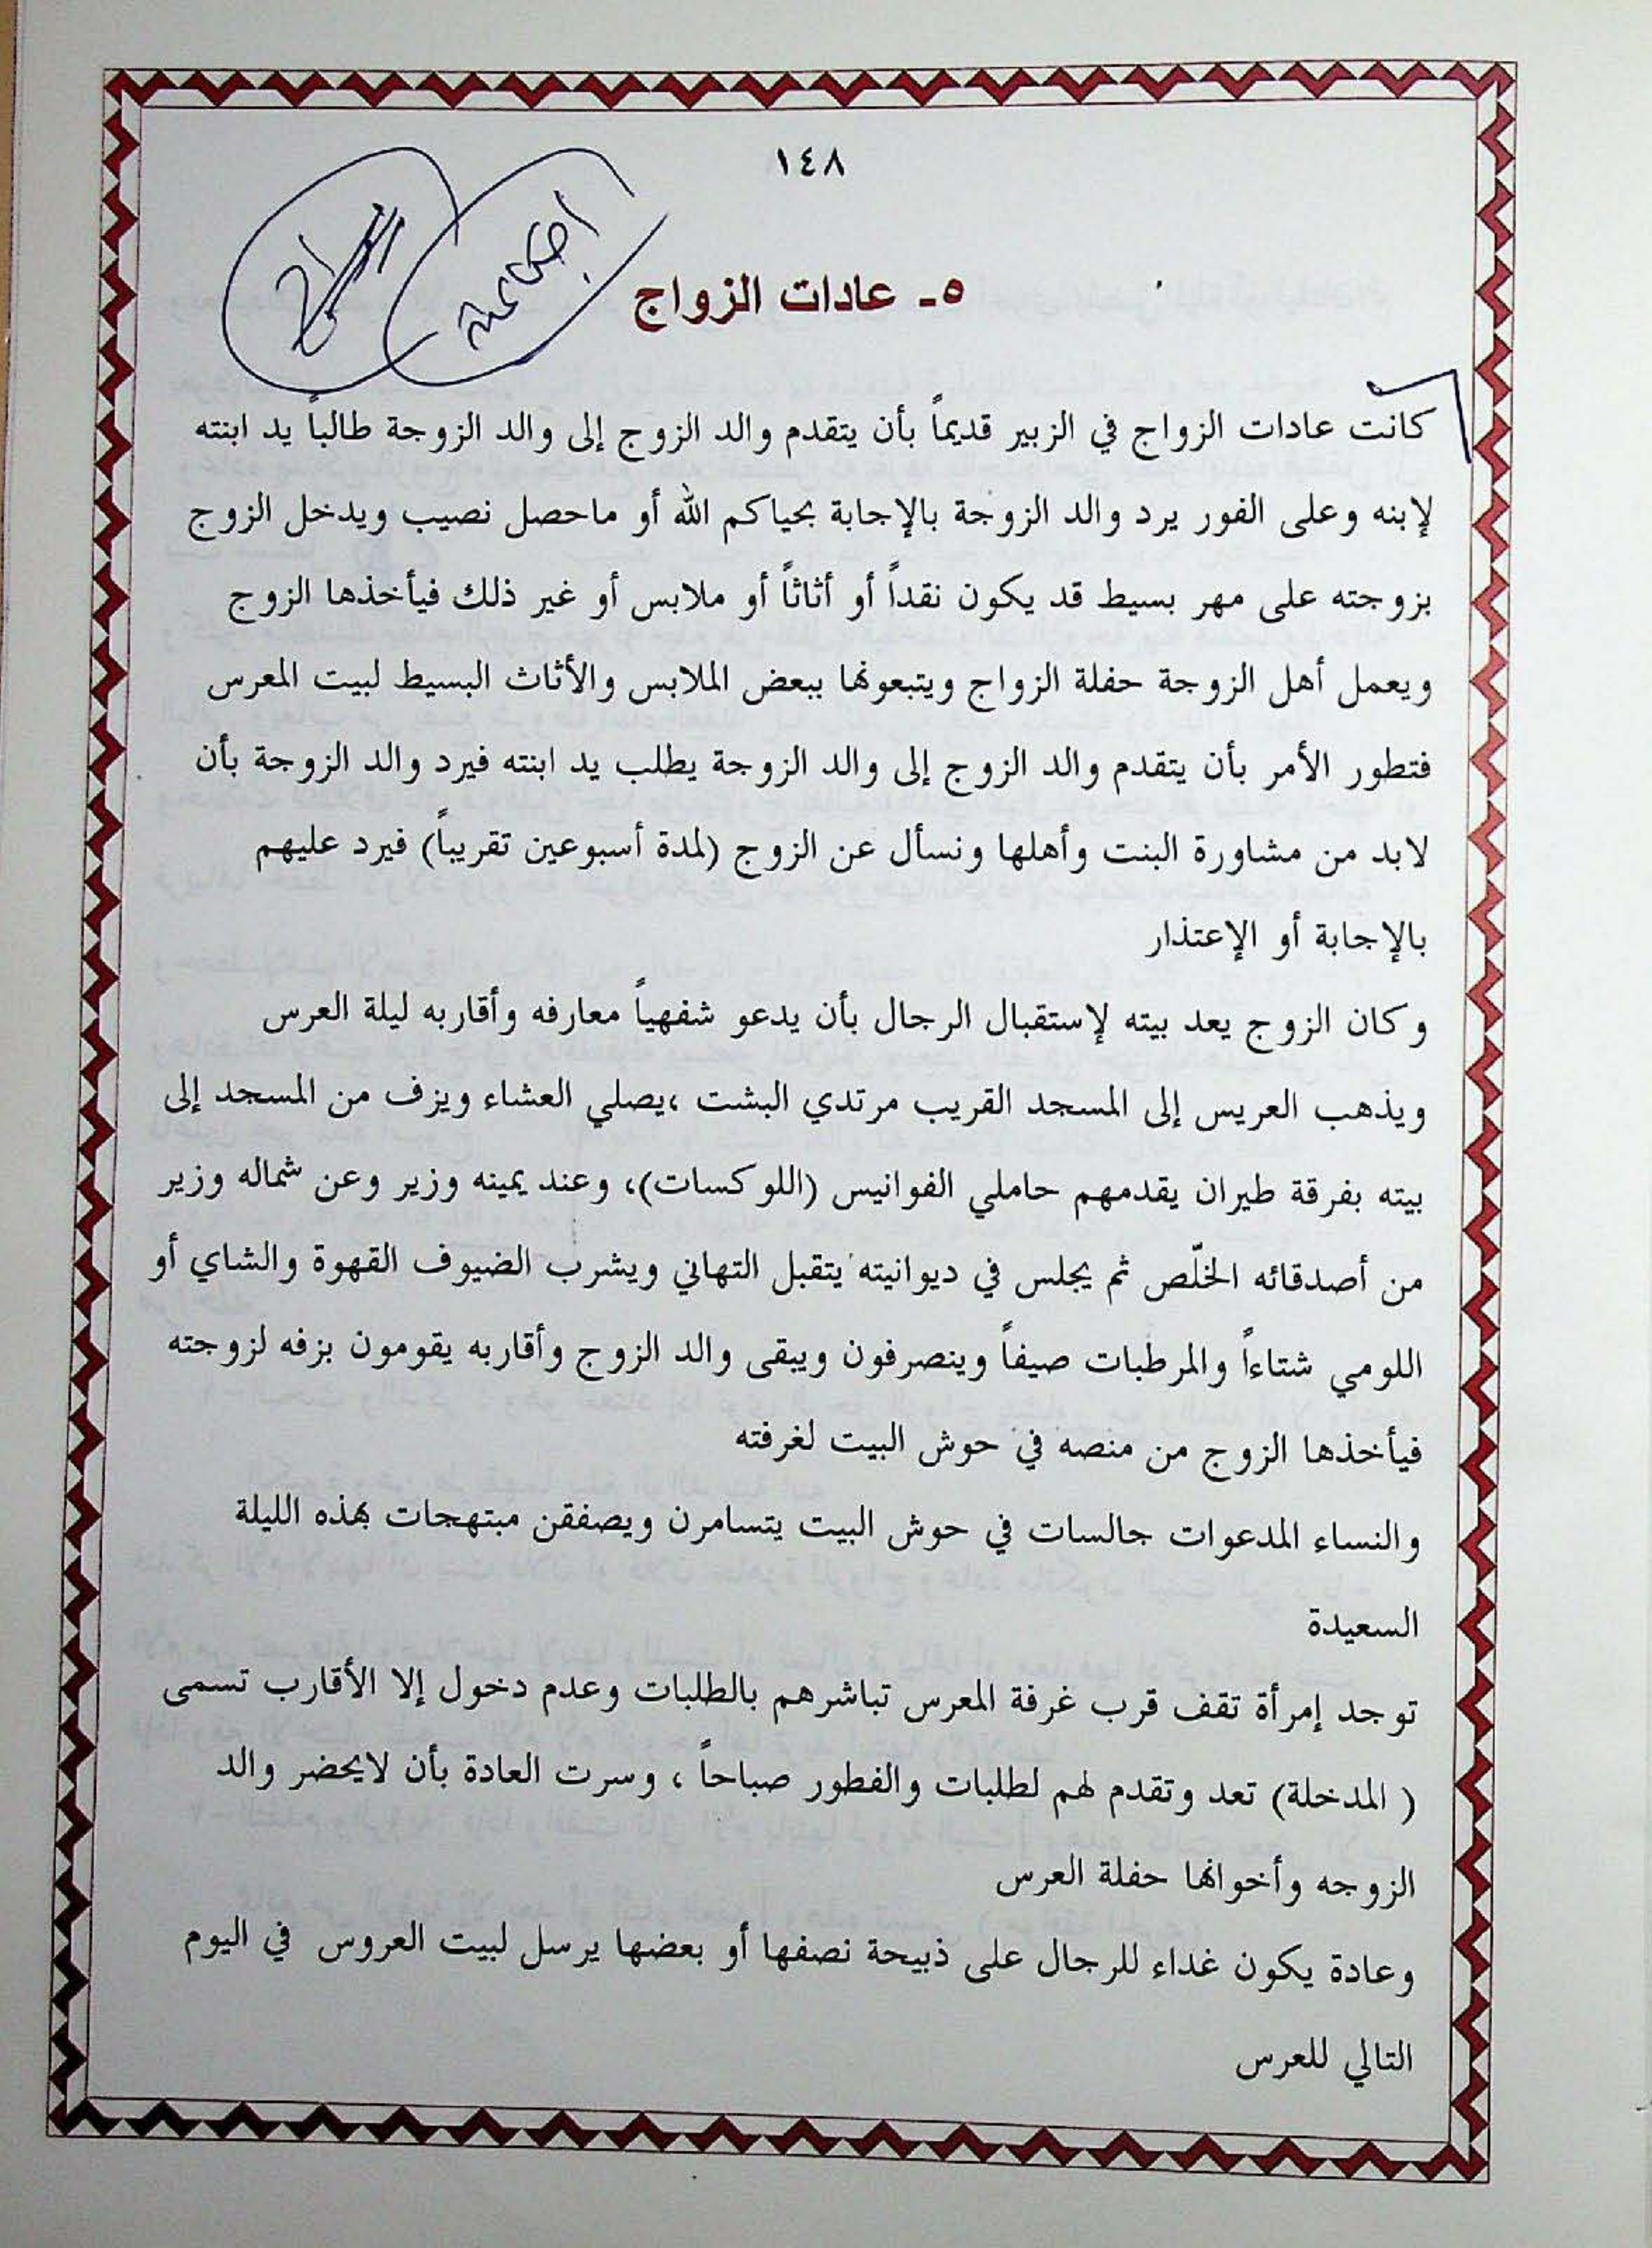 ١٤٨
اجتماعية
٥- عادات الزواج
كانت عادات الزواج في الزبير قديماً بأن يتقدم والد الزوج إلى والد الزوجة طالباً يد ابنته
لإبنه وعلى الفور يرد والد الزوجة بالإجابة بحياكم الله أو ماحصل نصيب ويدخل الزوج
بزوجته على مهر بسيط قد يكون نقداً أو أثاثاً أو ملابس أو غير ذلك فيأخذها الزوج
ويعمل أهل الزوجة حفلة الزواج ويتبعونها ببعض الملابس والأثاث البسيط لبيت المعرس
فتطور الأمر بأن يتقدم والد الزوج إلى والد الزوجة يطلب يد ابنته فيرد والد الزوجة بأن
لابد من مشاورة البنت وأهلها ونسأل عن الزوج (لمدة أسبوعين تقريباً) فيرد عليهم
بالإجابة أو الإعتذار
وكان الزوج يعد بيته لإستقبال الرجال بأن يدعو شفهياً معارفه وأقاربه ليلة العرس
ويذهب العريس إلى المسجد القريب مرتدي البشت ،يصلي العشاء ويزف من المسجد إلى
بيته بفرقة طيران يقدمهم حاملي الفوانيس (اللوكسات)، وعند يمينه وزير وعن شماله وزير
من أصدقائه الخلّص ثم يجلس في ديوانيته يتقبل التهاني ويشرب الضيوف القهوة والشاي أو
اللومي شتاءاً والمرطبات صيفاً وينصرفون ويبقى والد الزوج وأقاربه يقومون بزفه لزوجته
فيأخذها الزوج من منصه في حوش البيت لغرفته
والنساء المدعوات جالسات في حوش البيت يتسامرن ويصفقن مبتهجات بهذه الليلة
السعيدة
توجد إمرأة تقف قرب غرفة المعرس تباشرهم بالطلبات وعدم دخول إلا الأقارب تسمى
( المدخلة) تعد وتقدم لهم لطلبات والفطور صباحاً ، وسرت العادة بأن لايحضر والد
الزوجه وأخوانها حفلة العرس
وعادة يكون غداء للرجال على ذبيحة نصفها أو بعضها يرسل لبيت العروس في اليوم
التالي للعرس